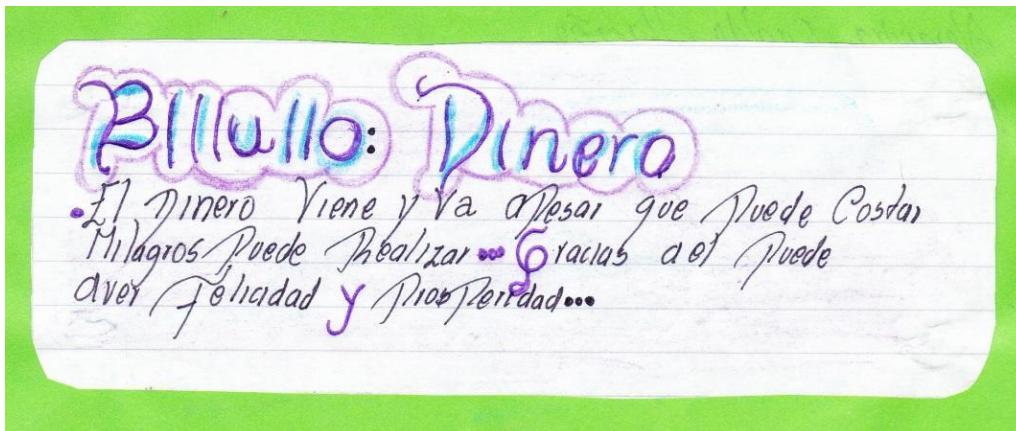 BIllullo: Dinero
• El Dinero Viene y Va apesar que Puede Costar
Milagros Puede Realizar... Gracias a el Puede
aver Felicidad y Prosperidad...